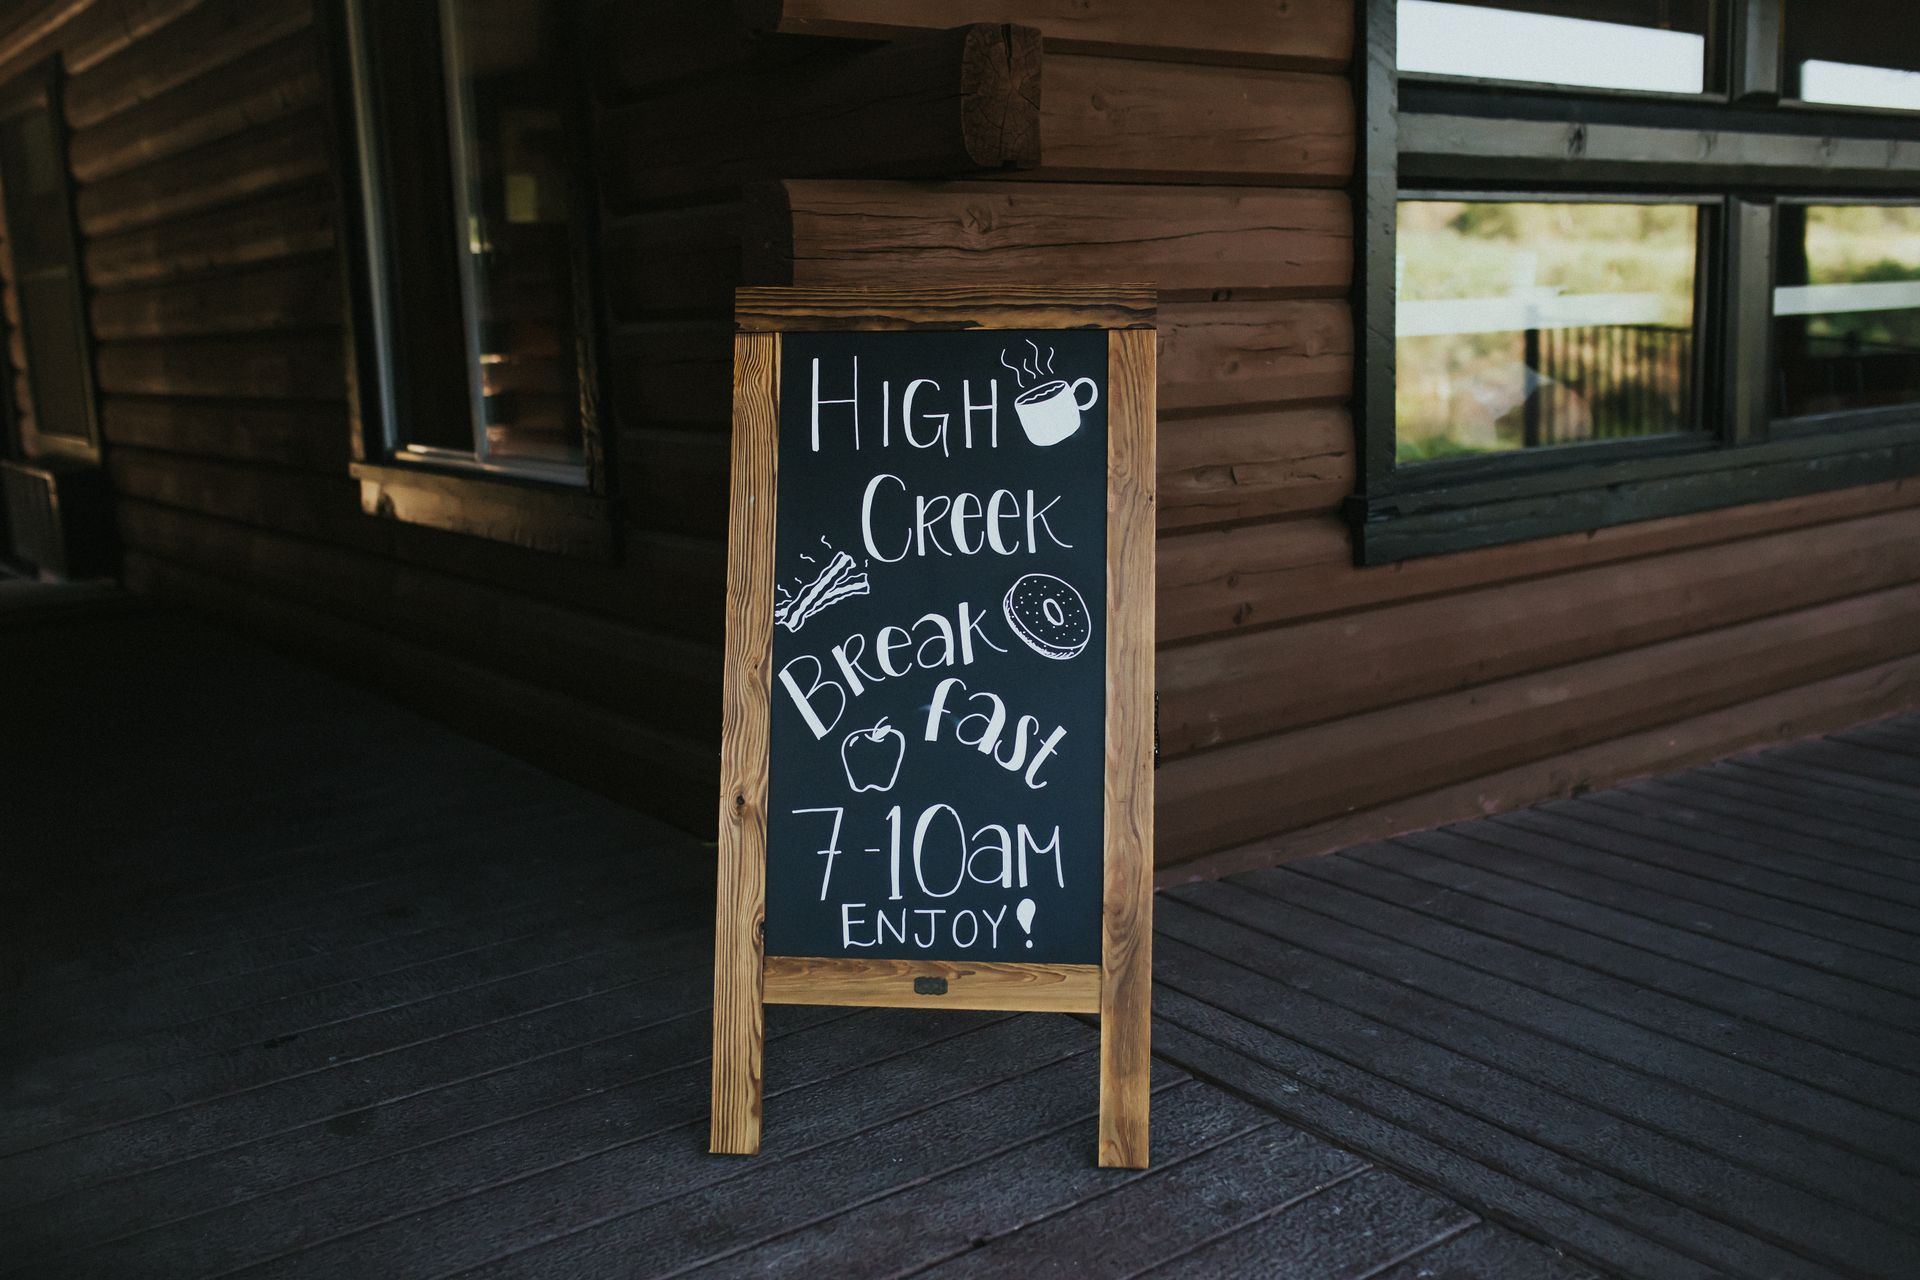 HIGH
CREEK
Break
fast
7-10am
ENJOY!